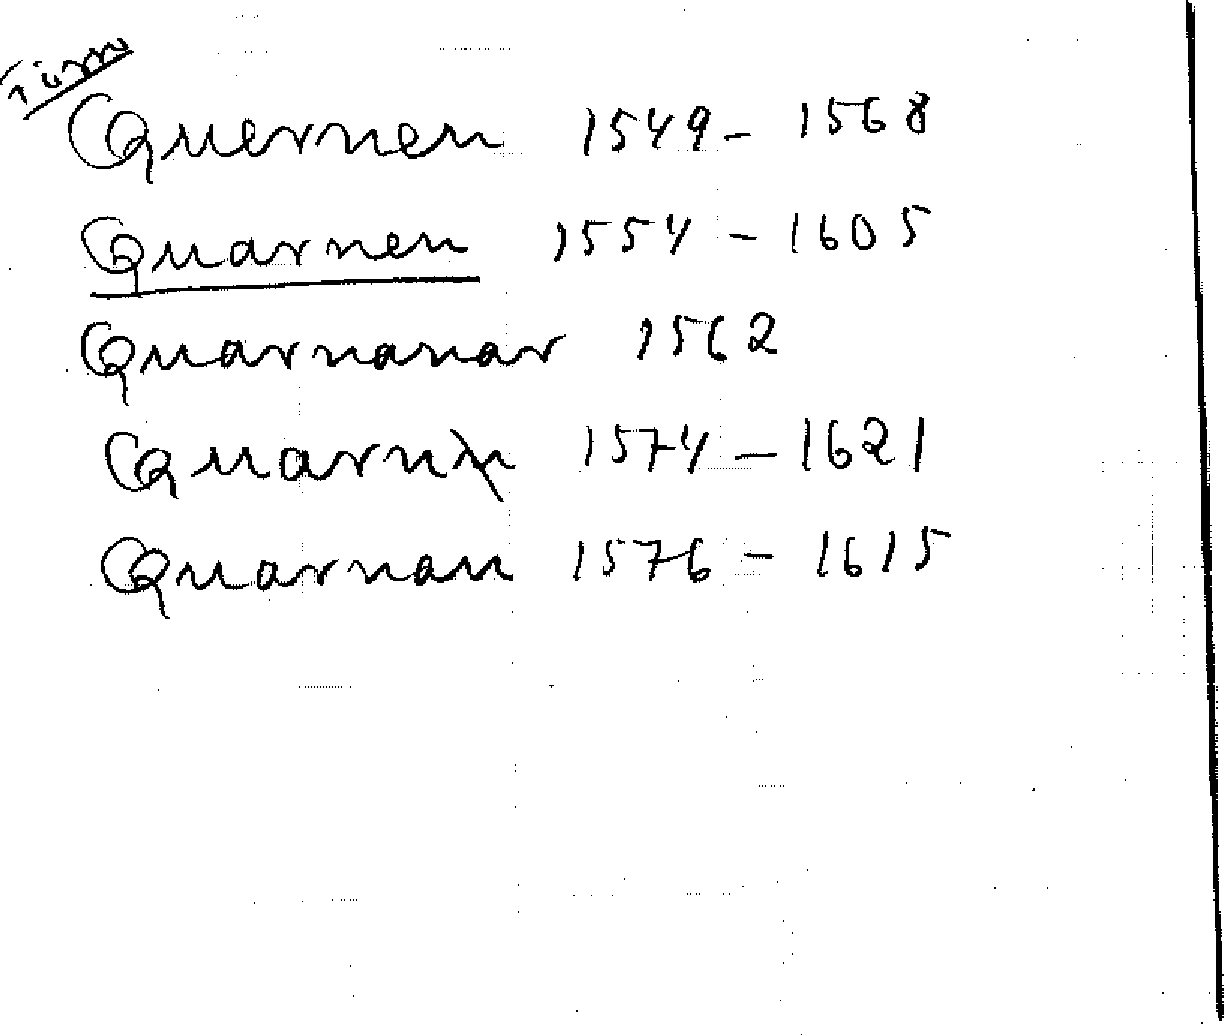 Quernen 1549 - 1568
Quarnen 1554 - 1605
Quarnanar 1562
Quarnn 1574 - 1621
Quarnan 1576 - 1615